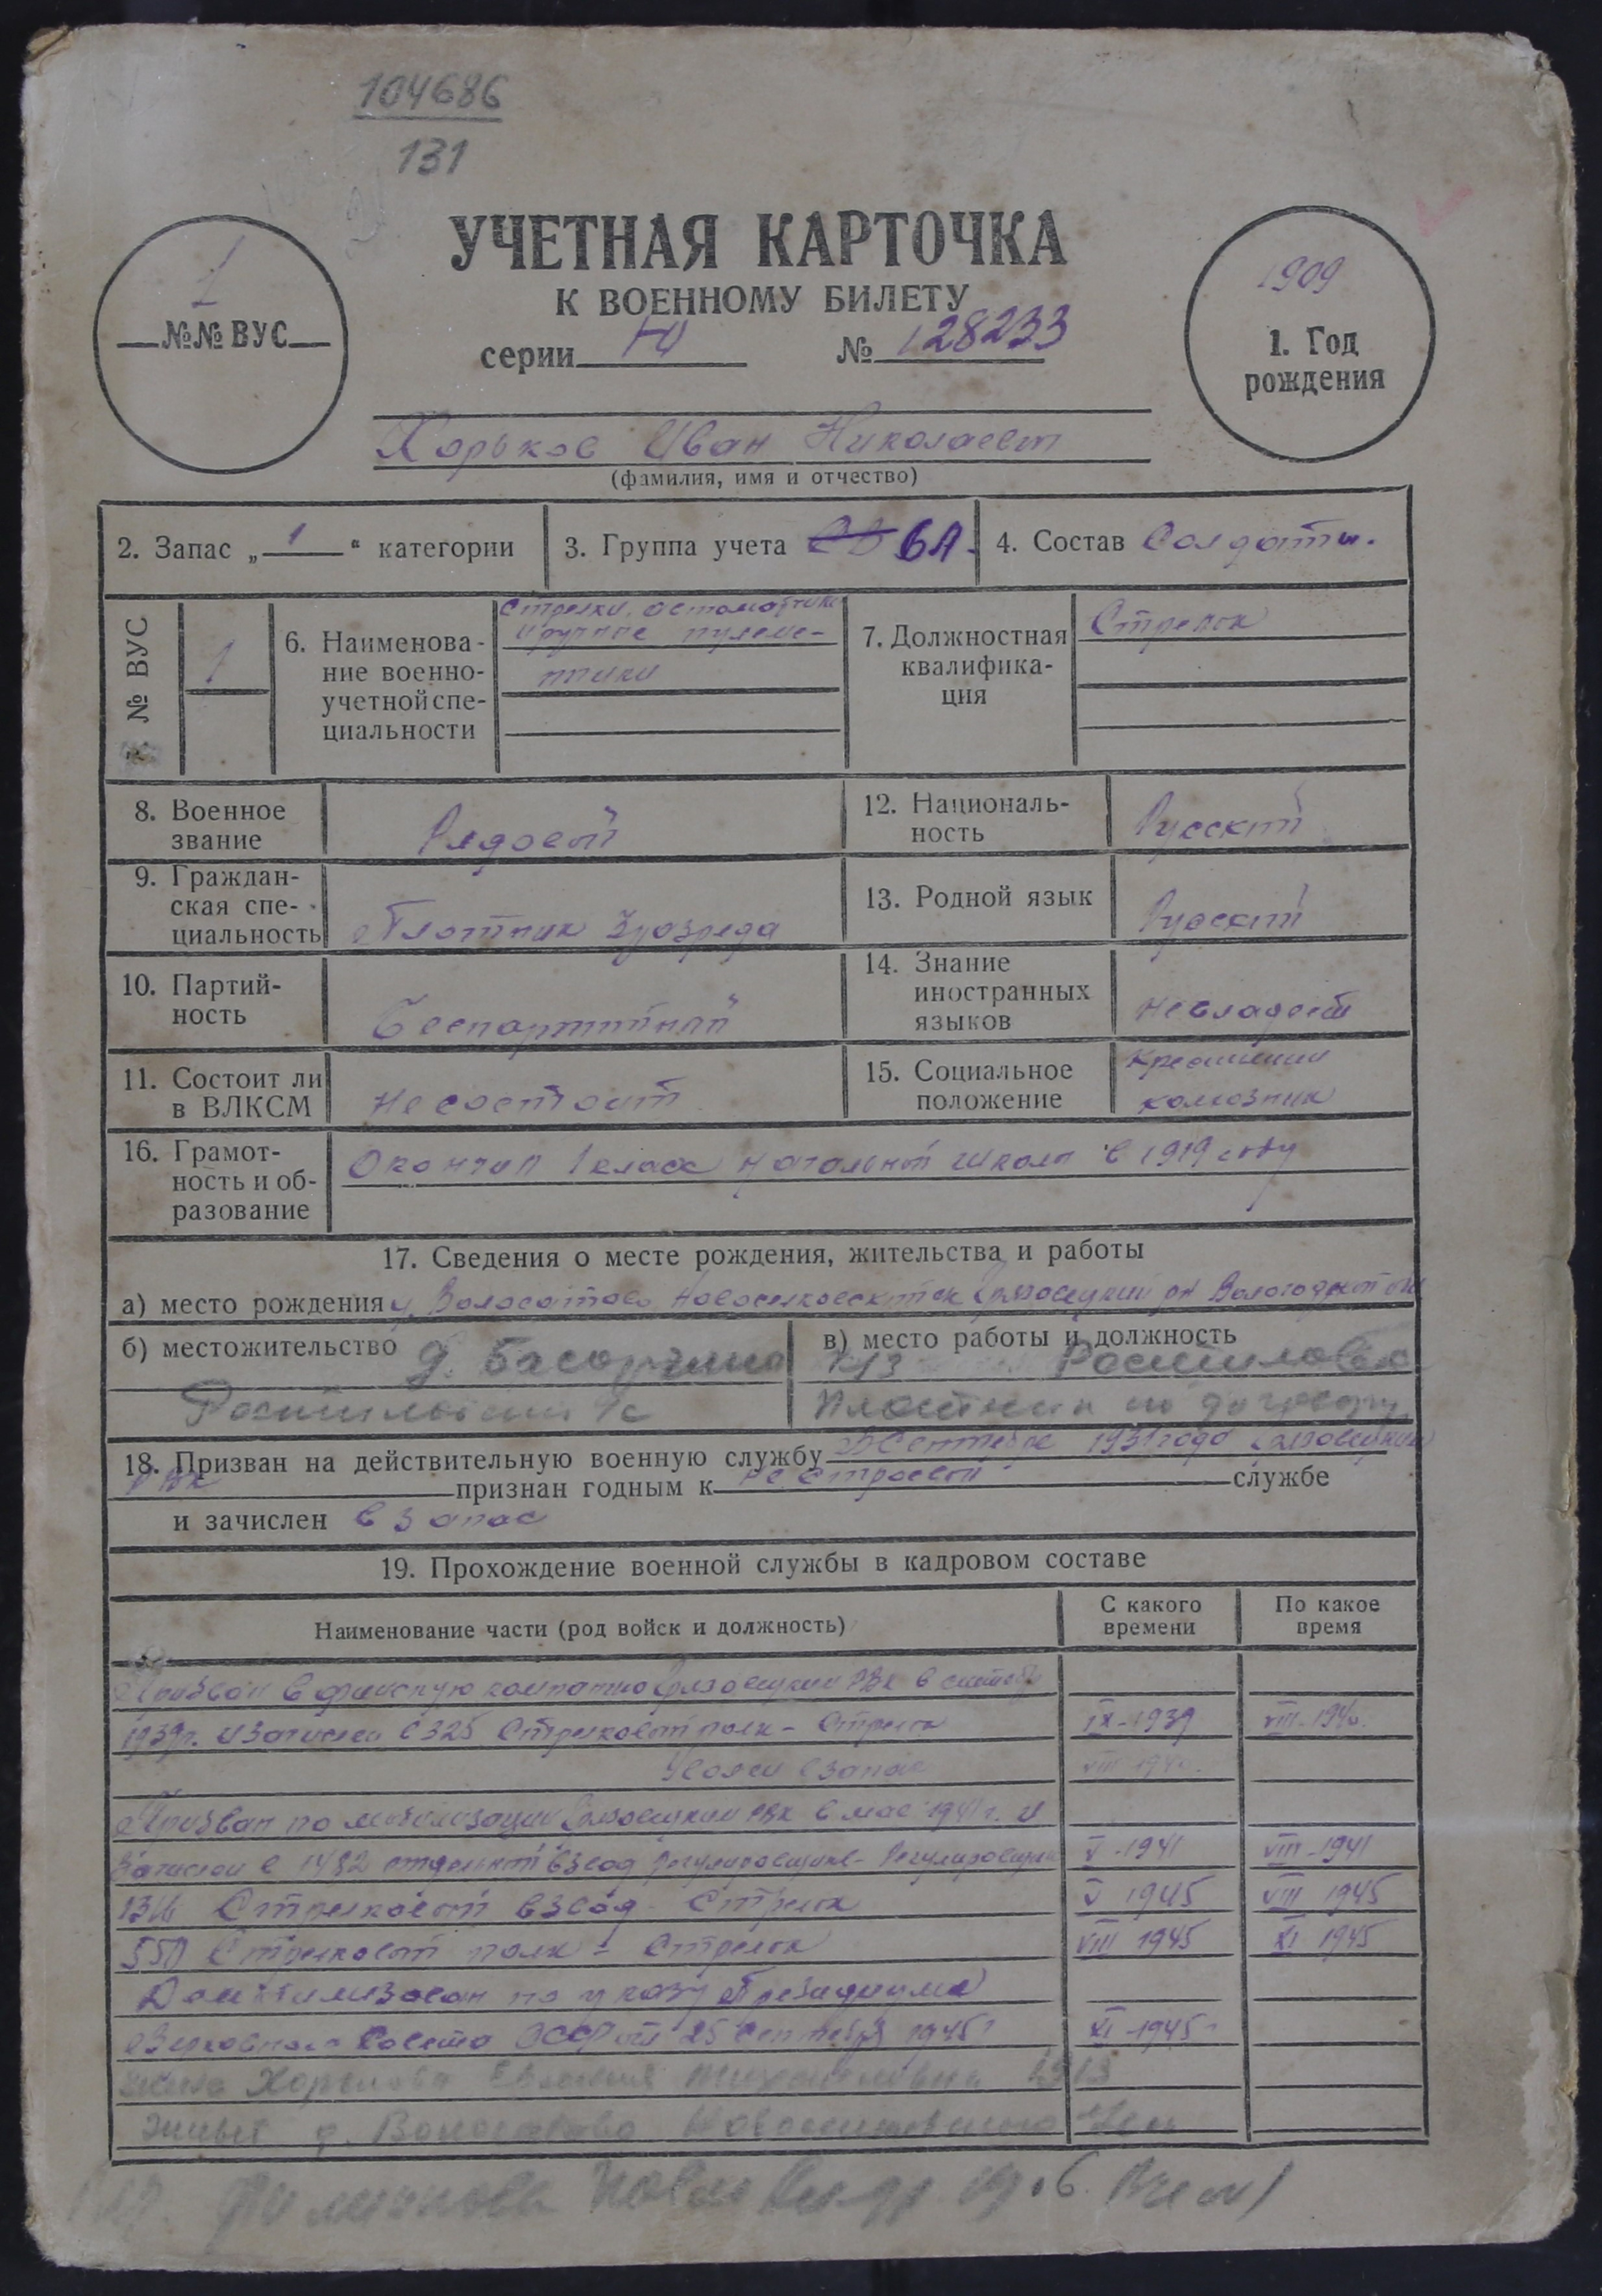 104686
131
УЧЕТНАЯ КАРТОЧКА
К ВОЕННОМУ БИЛЕТУ
серии Ю № 128233
1
№№ ВУС
1909
1. Год
рождения
Хорьков Иван Николаевич
(фамилия, имя и отчество)
2. Запас „ 1 “ категории
3. Группа учета СВ ВА.
4. Состав Солдаты.
№ ВУС
1
6. Наименова-
ние военно-
учетной спе-
циальности
Стрелки, автоматчики
и ручные пулеме-
тчики
7. Должностная
квалифика-
ция
Стрелок
8. Военное
звание
Рядовой
12. Националь-
ность
Русский
9. Граждан-
ская спе-
циальность
Плотник 3 разряда
13. Родной язык
Русский
10. Партий-
ность
Беспартийный
14. Знание
иностранных
языков
не владеет
11. Состоит ли
в ВЛКСМ
не состоит
15. Социальное
положение
Крестьянин
колхозник
16. Грамот-
ность и об-
разование
Окончил 1 класс начальной школы в 1919 году
17. Сведения о месте рождения, жительства и работы
а) место рождения Грязовецкий рн Вологодской
б) местожительство д.
в) место работы и должность
к/з
Плотник по договору
18. Призван на действительную военную службу Сентябре 1931 года Грязовецким
РВК признан годным к не строевой службе
и зачислен в запас
19. Прохождение военной службы в кадровом составе
Наименование части (род войск и должность)
С какого
времени
По какое
время
Призван в финскую компанию Грязовецким РВК в
1939 г. и зачислен в 325 Стрелковый полк - Стрелок IX-1939 VIII-1940.
Уволен в запас VIII 1940.
Призван по мобилизации Грязовецким РВК в мае 1941 г. и
зачислен в 1482 отдельный взвод регулировщиков - Регулировщик V-1941 VIII-1941
Стрелковый взвод - Стрелок V 1945 VIII 1945
550 Стрелковый полк - Стрелок VIII 1945 XI 1945
Демобилизован по указу Президиума
Верховного Совета СССР от 25 Сентября 1945 г XI-1945 г
жена Хорькова 1913
живет д.